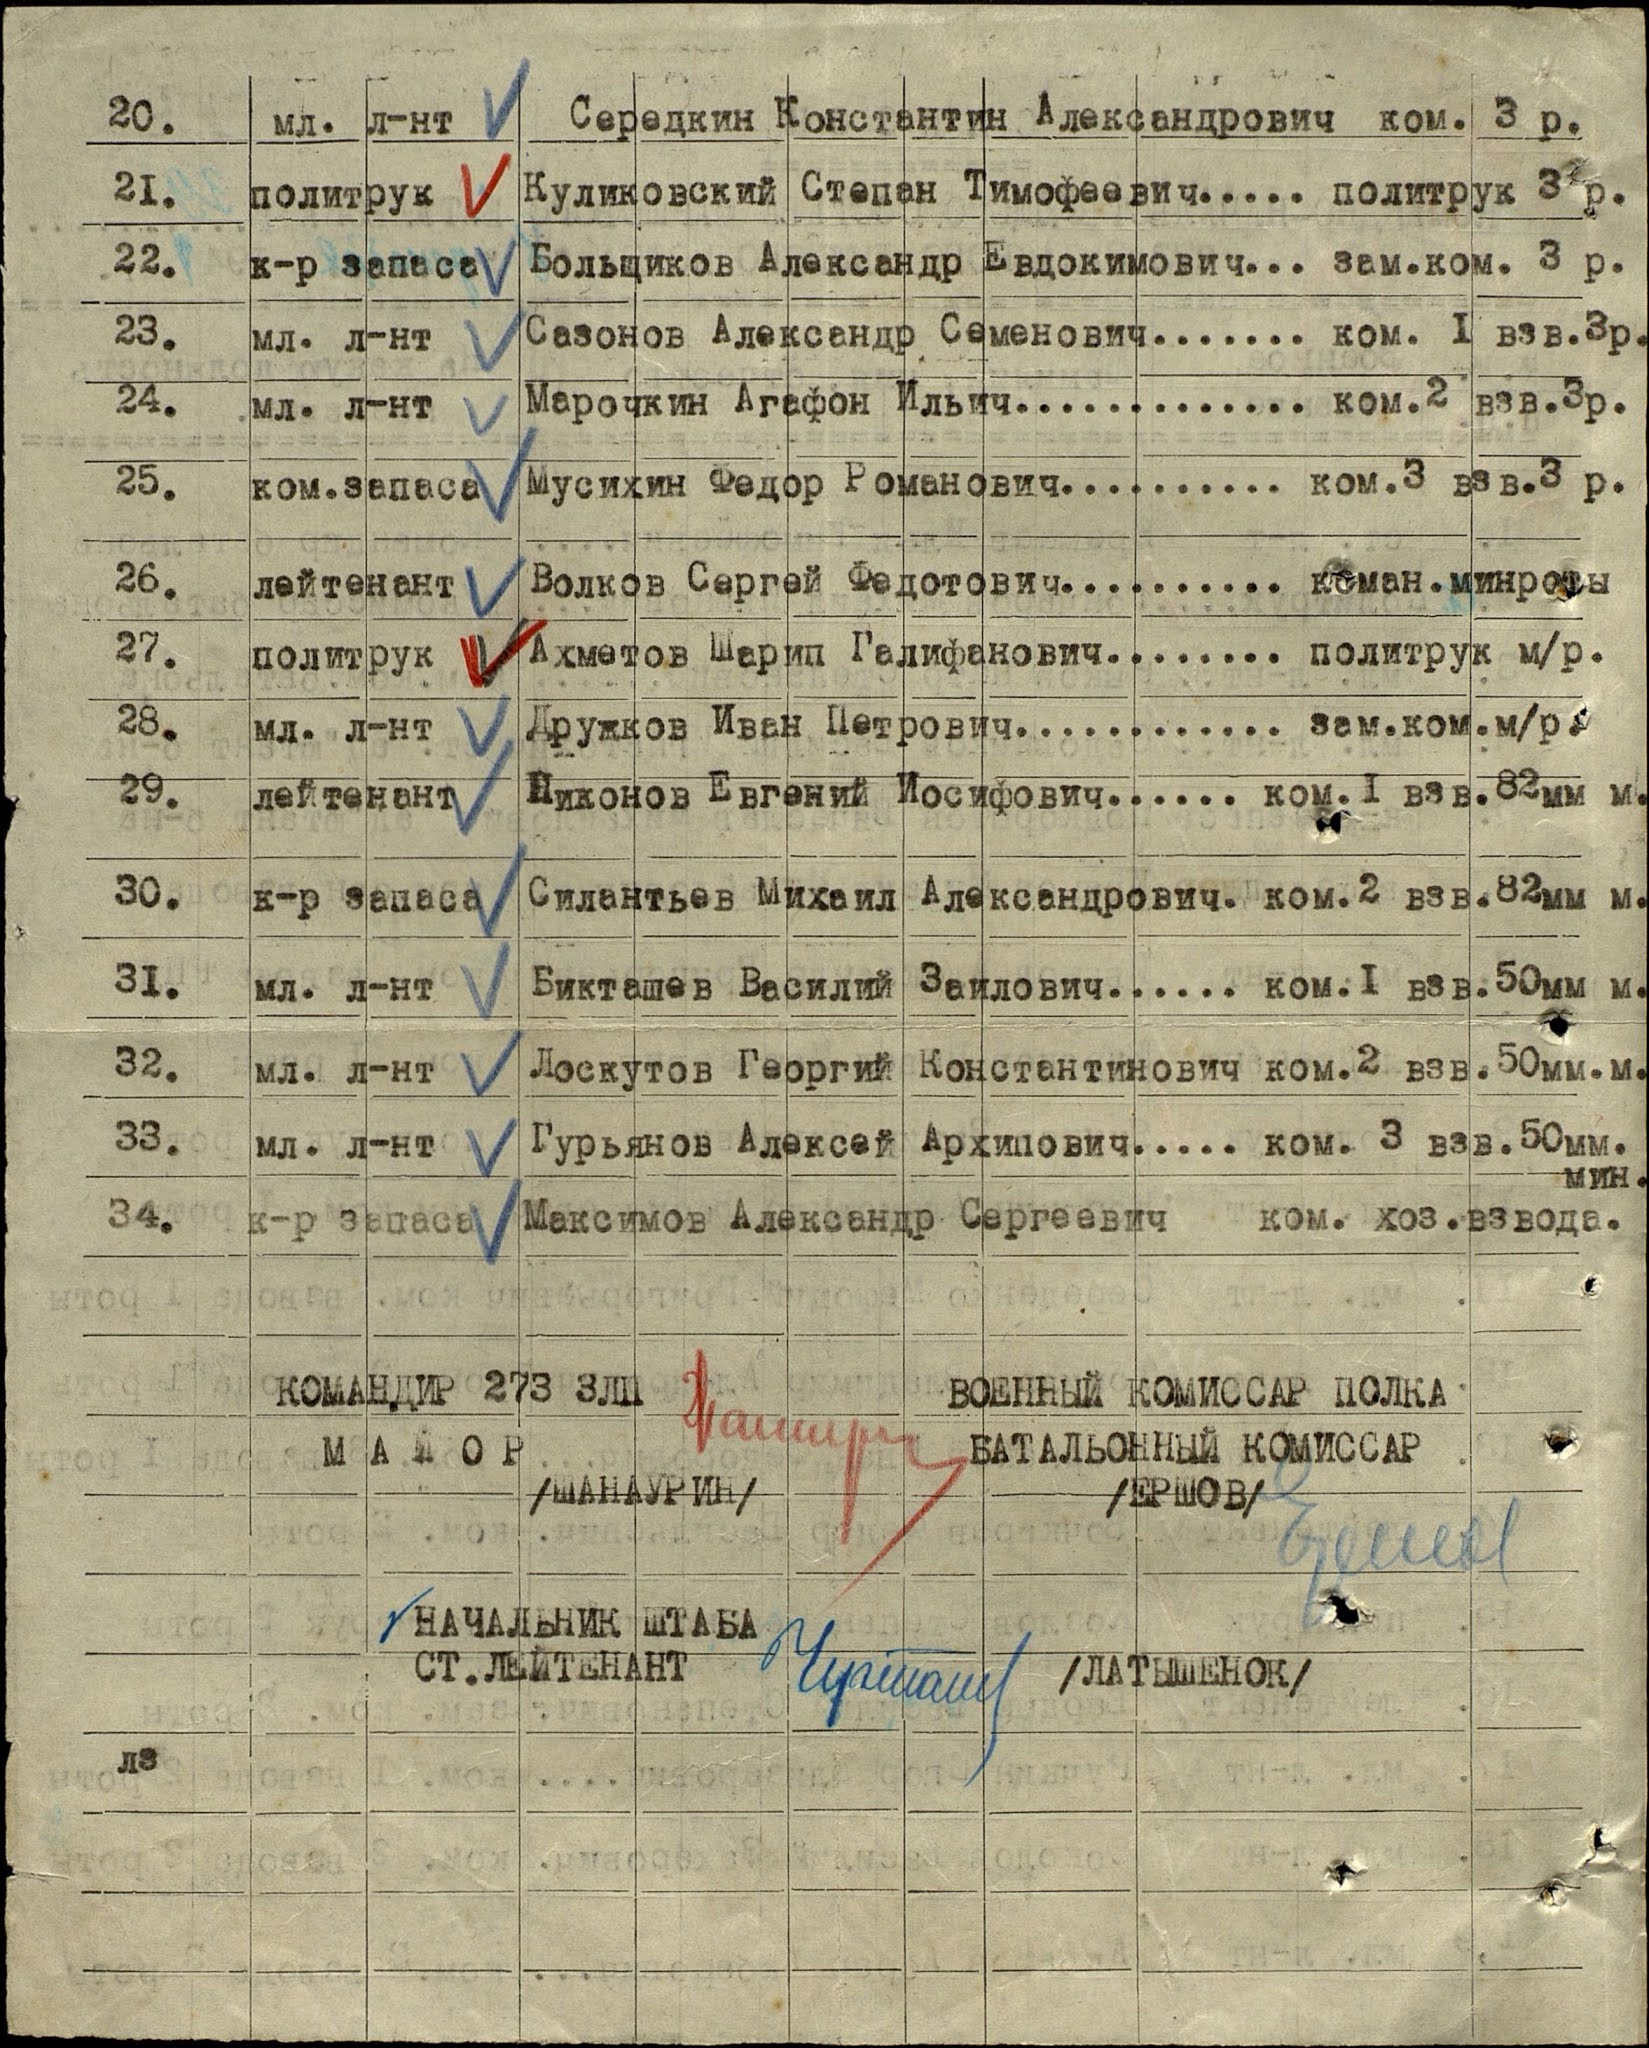 20. мл. л-нт Середкин Константин Александрович ком. 3 р.
21. политрук Куликовский Степан Тимофеевич..... политрук 3 р.
22. к-р запаса Больщиков Александр Евдокимович... зам.ком. 3 р.
23. мл. л-нт Сазонов Александр Семенович....... ком. I взв.3р.
24. мл. л-нт Марочкин Агафон Ильич............. ком.2 взв.3р.
25. ком.запаса Мусихин Федор Романович.......... ком.3 взв.3 р.
26. лейтенант Волков Сергей Федотович.......... коман.минроты
27. политрук Ахметов Шарип Галифанович........ политрук м/р.
28. мл. л-нт Дружков Иван Петрович............ зам.ком.м/р.
29. лейтенант Никонов Евгений Иосифович...... ком.I взв.82мм м.
30. к-р запаса Силантьев Михаил Александрович. ком.2 взв.82мм м.
31. мл. л-нт Бикташев Василий Заилович...... ком.I взв.50мм м.
32. мл. л-нт Лоскутов Георгий Константинович ком.2 взв.50мм.м.
33. мл. л-нт Гурьянов Алексей Архипович..... ком. 3 взв.50мм.
мин.
34. к-р запаса Максимов Александр Сергеевич ком. хоз.взвода.
КОМАНДИР 273 ЗЛП ВОЕННЫЙ КОМИССАР ПОЛКА
М А Й О Р БАТАЛЬОННЫЙ КОМИССАР
/ШАНАУРИН/ /ЕРШОВ/
НАЧАЛЬНИК ШТАБА
СТ.ЛЕЙТЕНАНТ /ЛАТЫШЕНОК/
лз